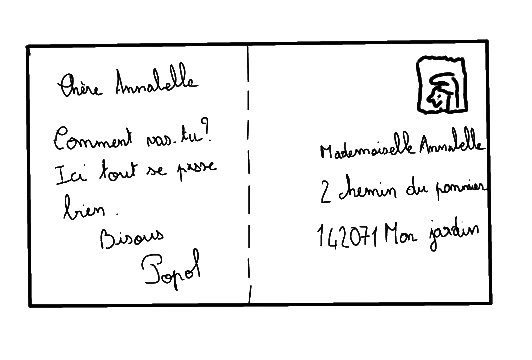 Chère Annabelle
Comment vas-tu?
Ici tout se passe
bien.
Bisous
Popol
Mademoiselle Annabelle
2 chemin du pommier
142071 Mon jardin